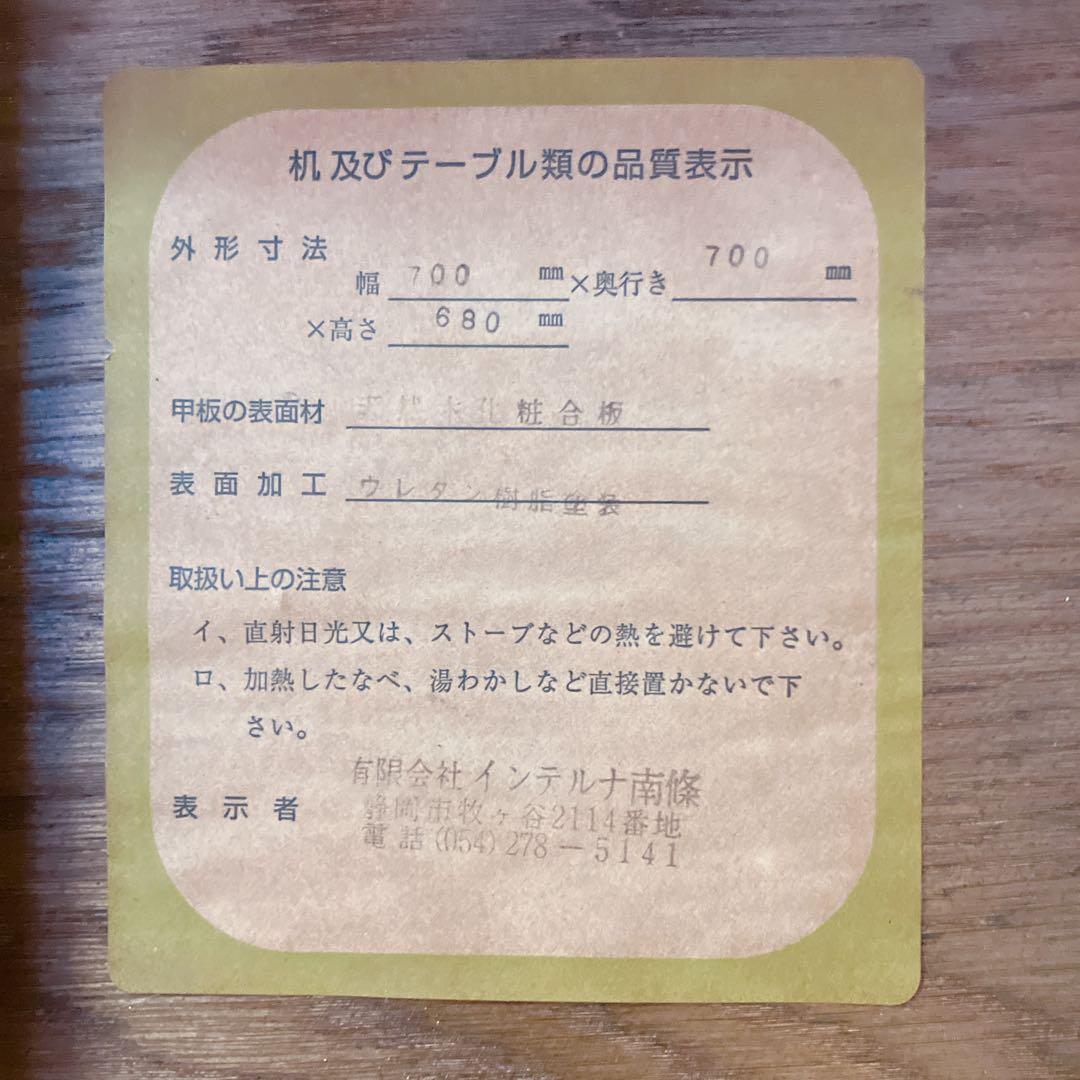 机及びテーブル類の品質表示
外形寸法
幅 700 mm ×奥行き 700 mm
×高さ 680 mm
甲板の表面材 天然木化粧合板
表面加工 ウレタン樹脂塗装
取扱い上の注意
イ、直射日光又は、ストーブなどの熱を避けて下さい。
ロ、加熱したなべ、湯わかしなど直接置かないで下
さい。
有限会社インテルナ南條
表示者 静岡市牧ヶ谷2114番地
電話(054)278-5141